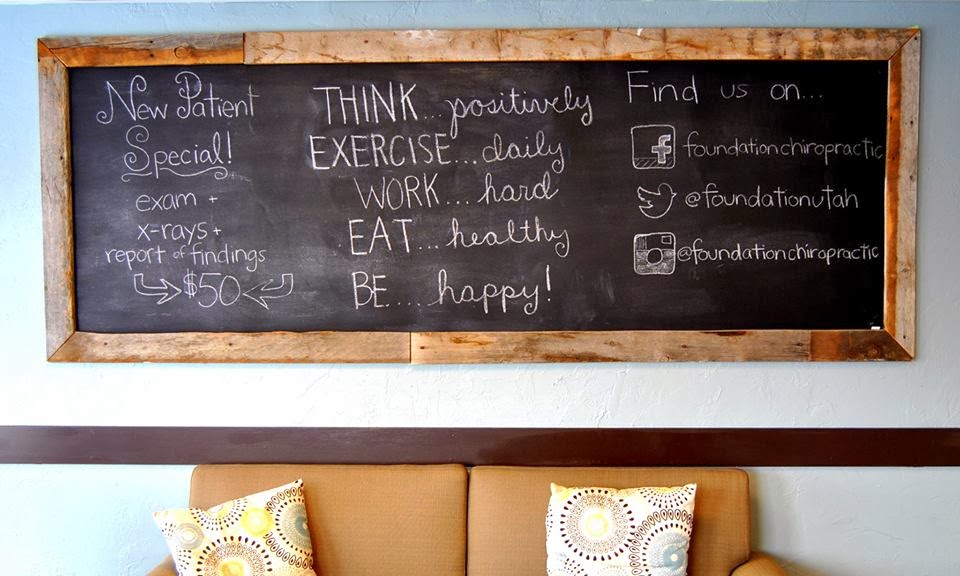 New Patient
Special!
exam +
x-rays +
report of findings
$50
THINK...positively
EXERCISE...daily
WORK...hard
EAT...healthy
BE....happy!
Find us on...
f foundationchiropractic
@foundationutah
@foundationchiropractic